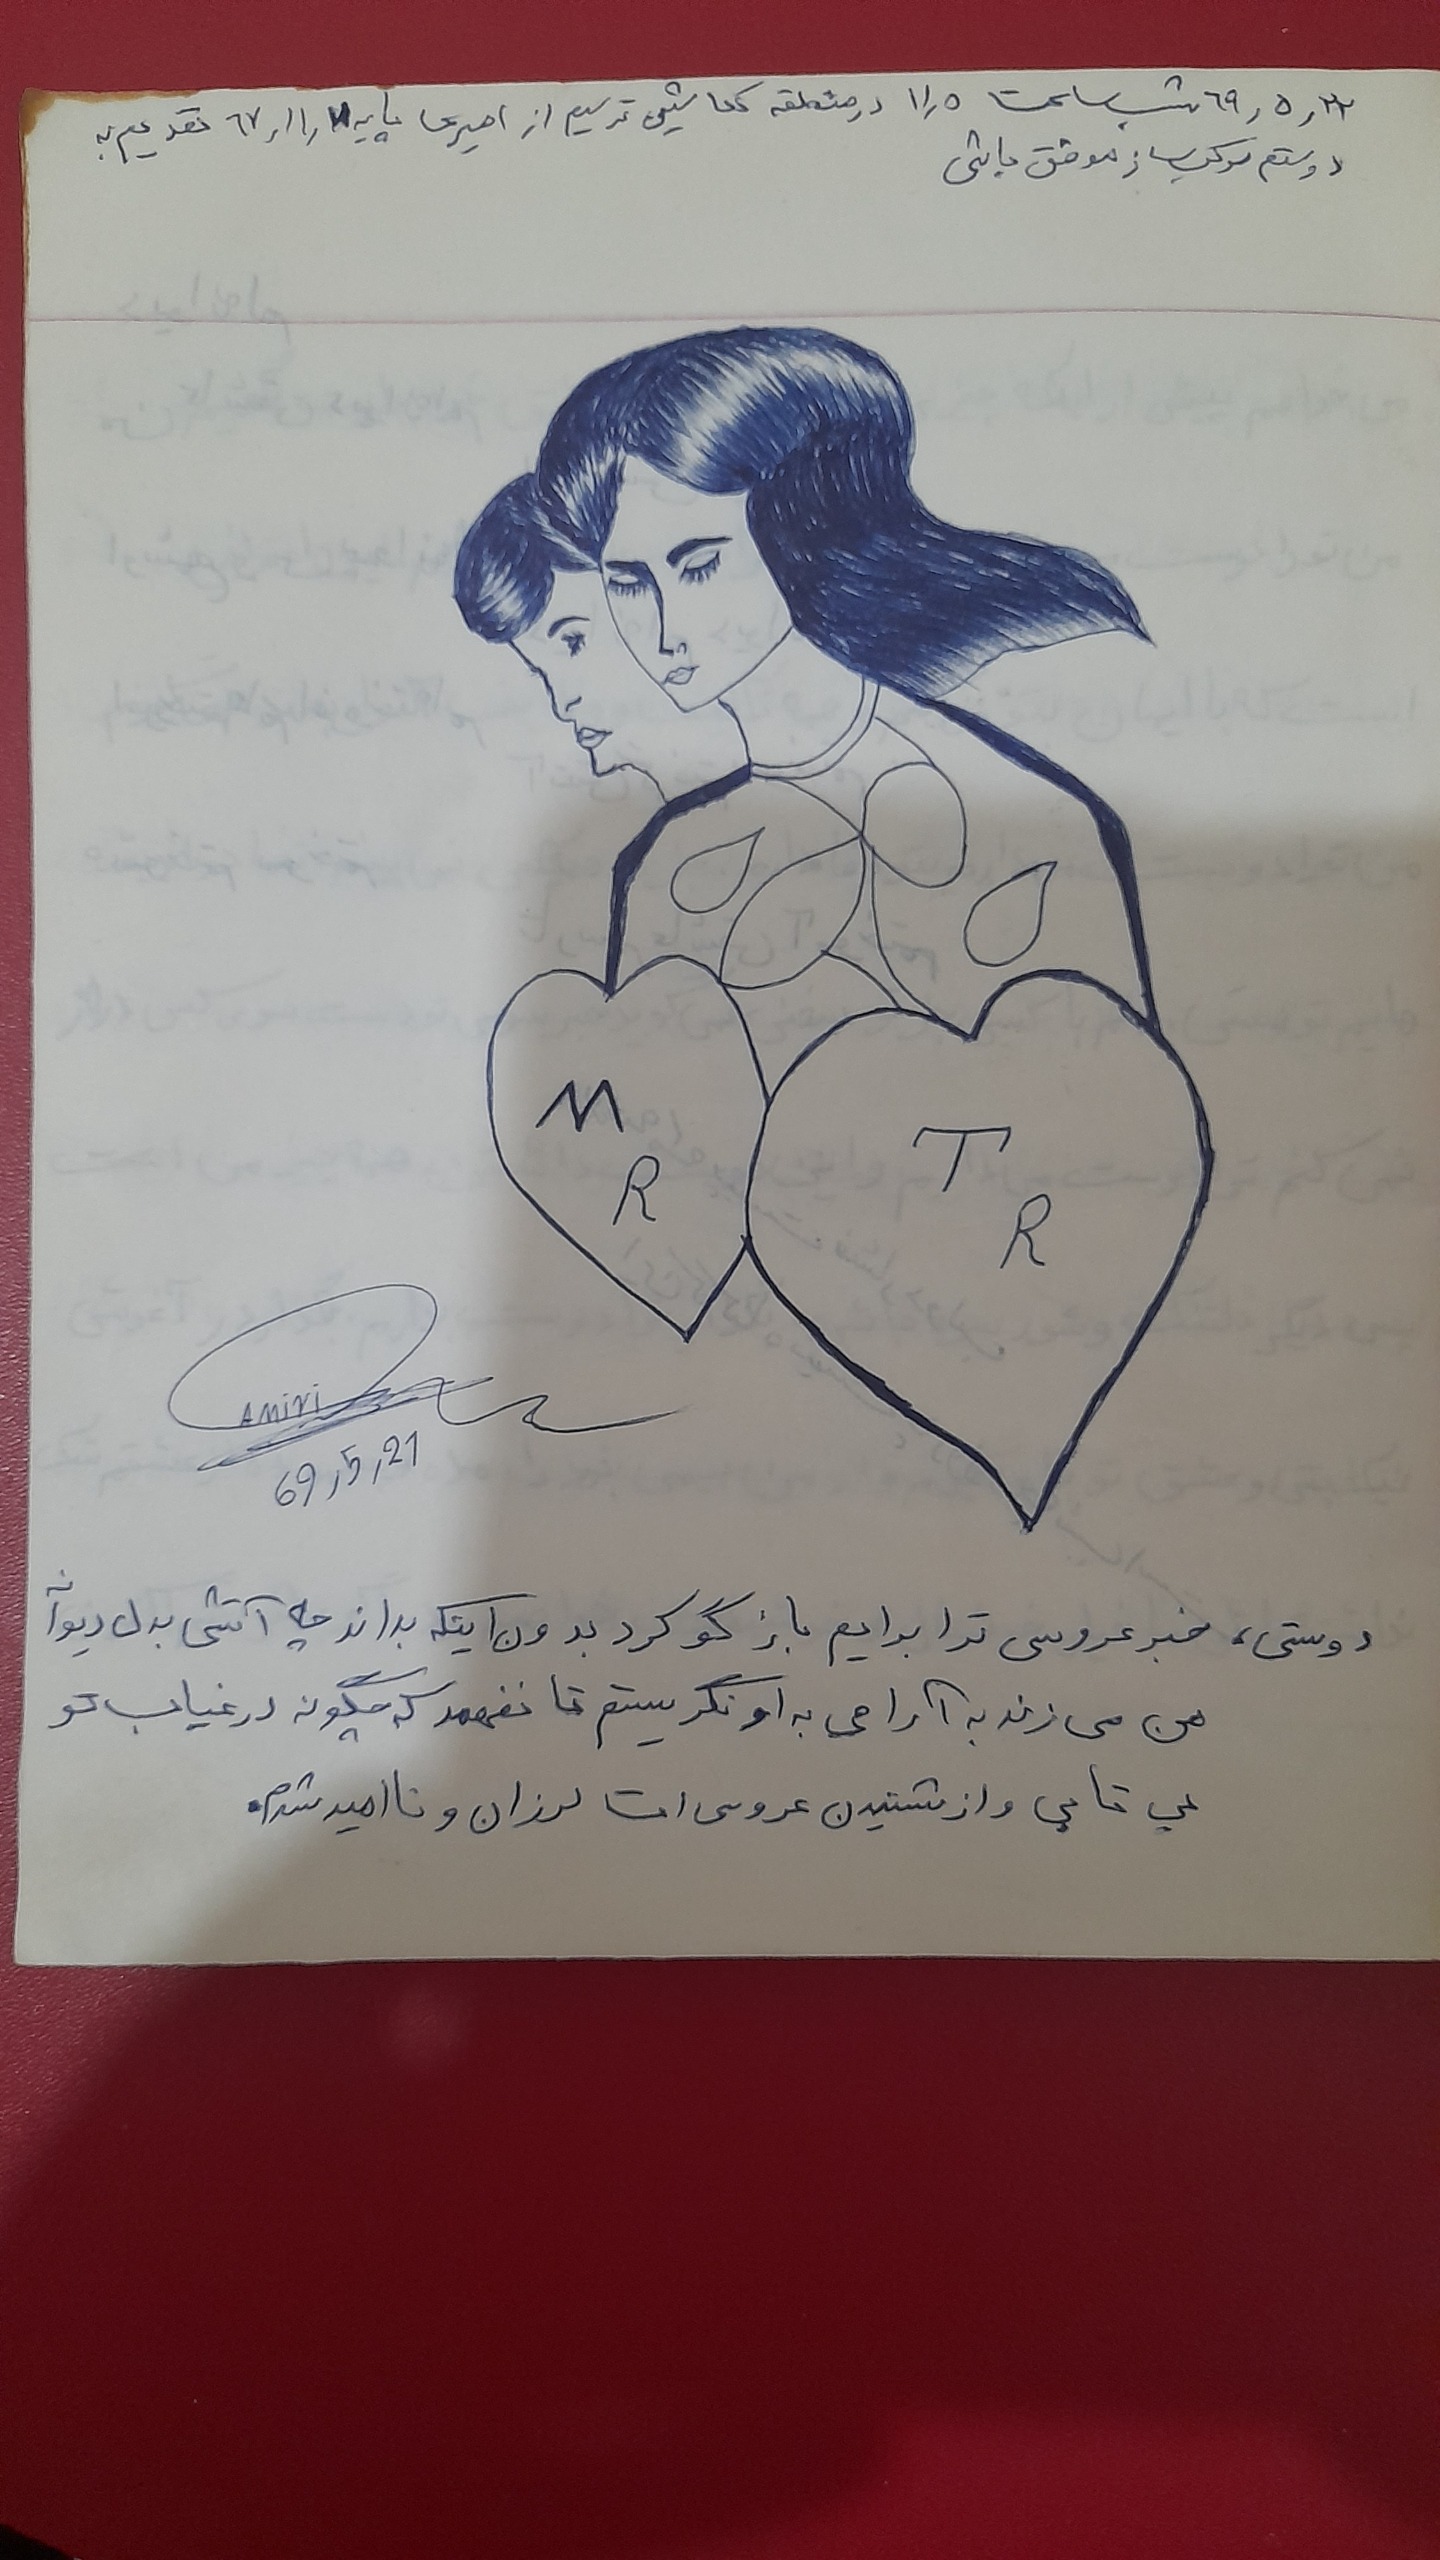 ۶۹٫۵٫۲۲ شب ساعت ۱٫۵ در منطقه ترسیم از امیرعا پایه ۶۷٫۱۱٫۱ تقدیم به
دوستم موفق باشی
M
R
T
R
AMIRI
69,5,21
دوستی، خبر عروسی ترا برایم بازگو کرد بدون اینکه بداند چه آتشی بدل دیوانه
من می زند به آرامی به او نگریستم تا نفهمد که چگونه در غیاب تو
بی تابی و از شنیدن عروسی ات لرزان و ناامید شدم.